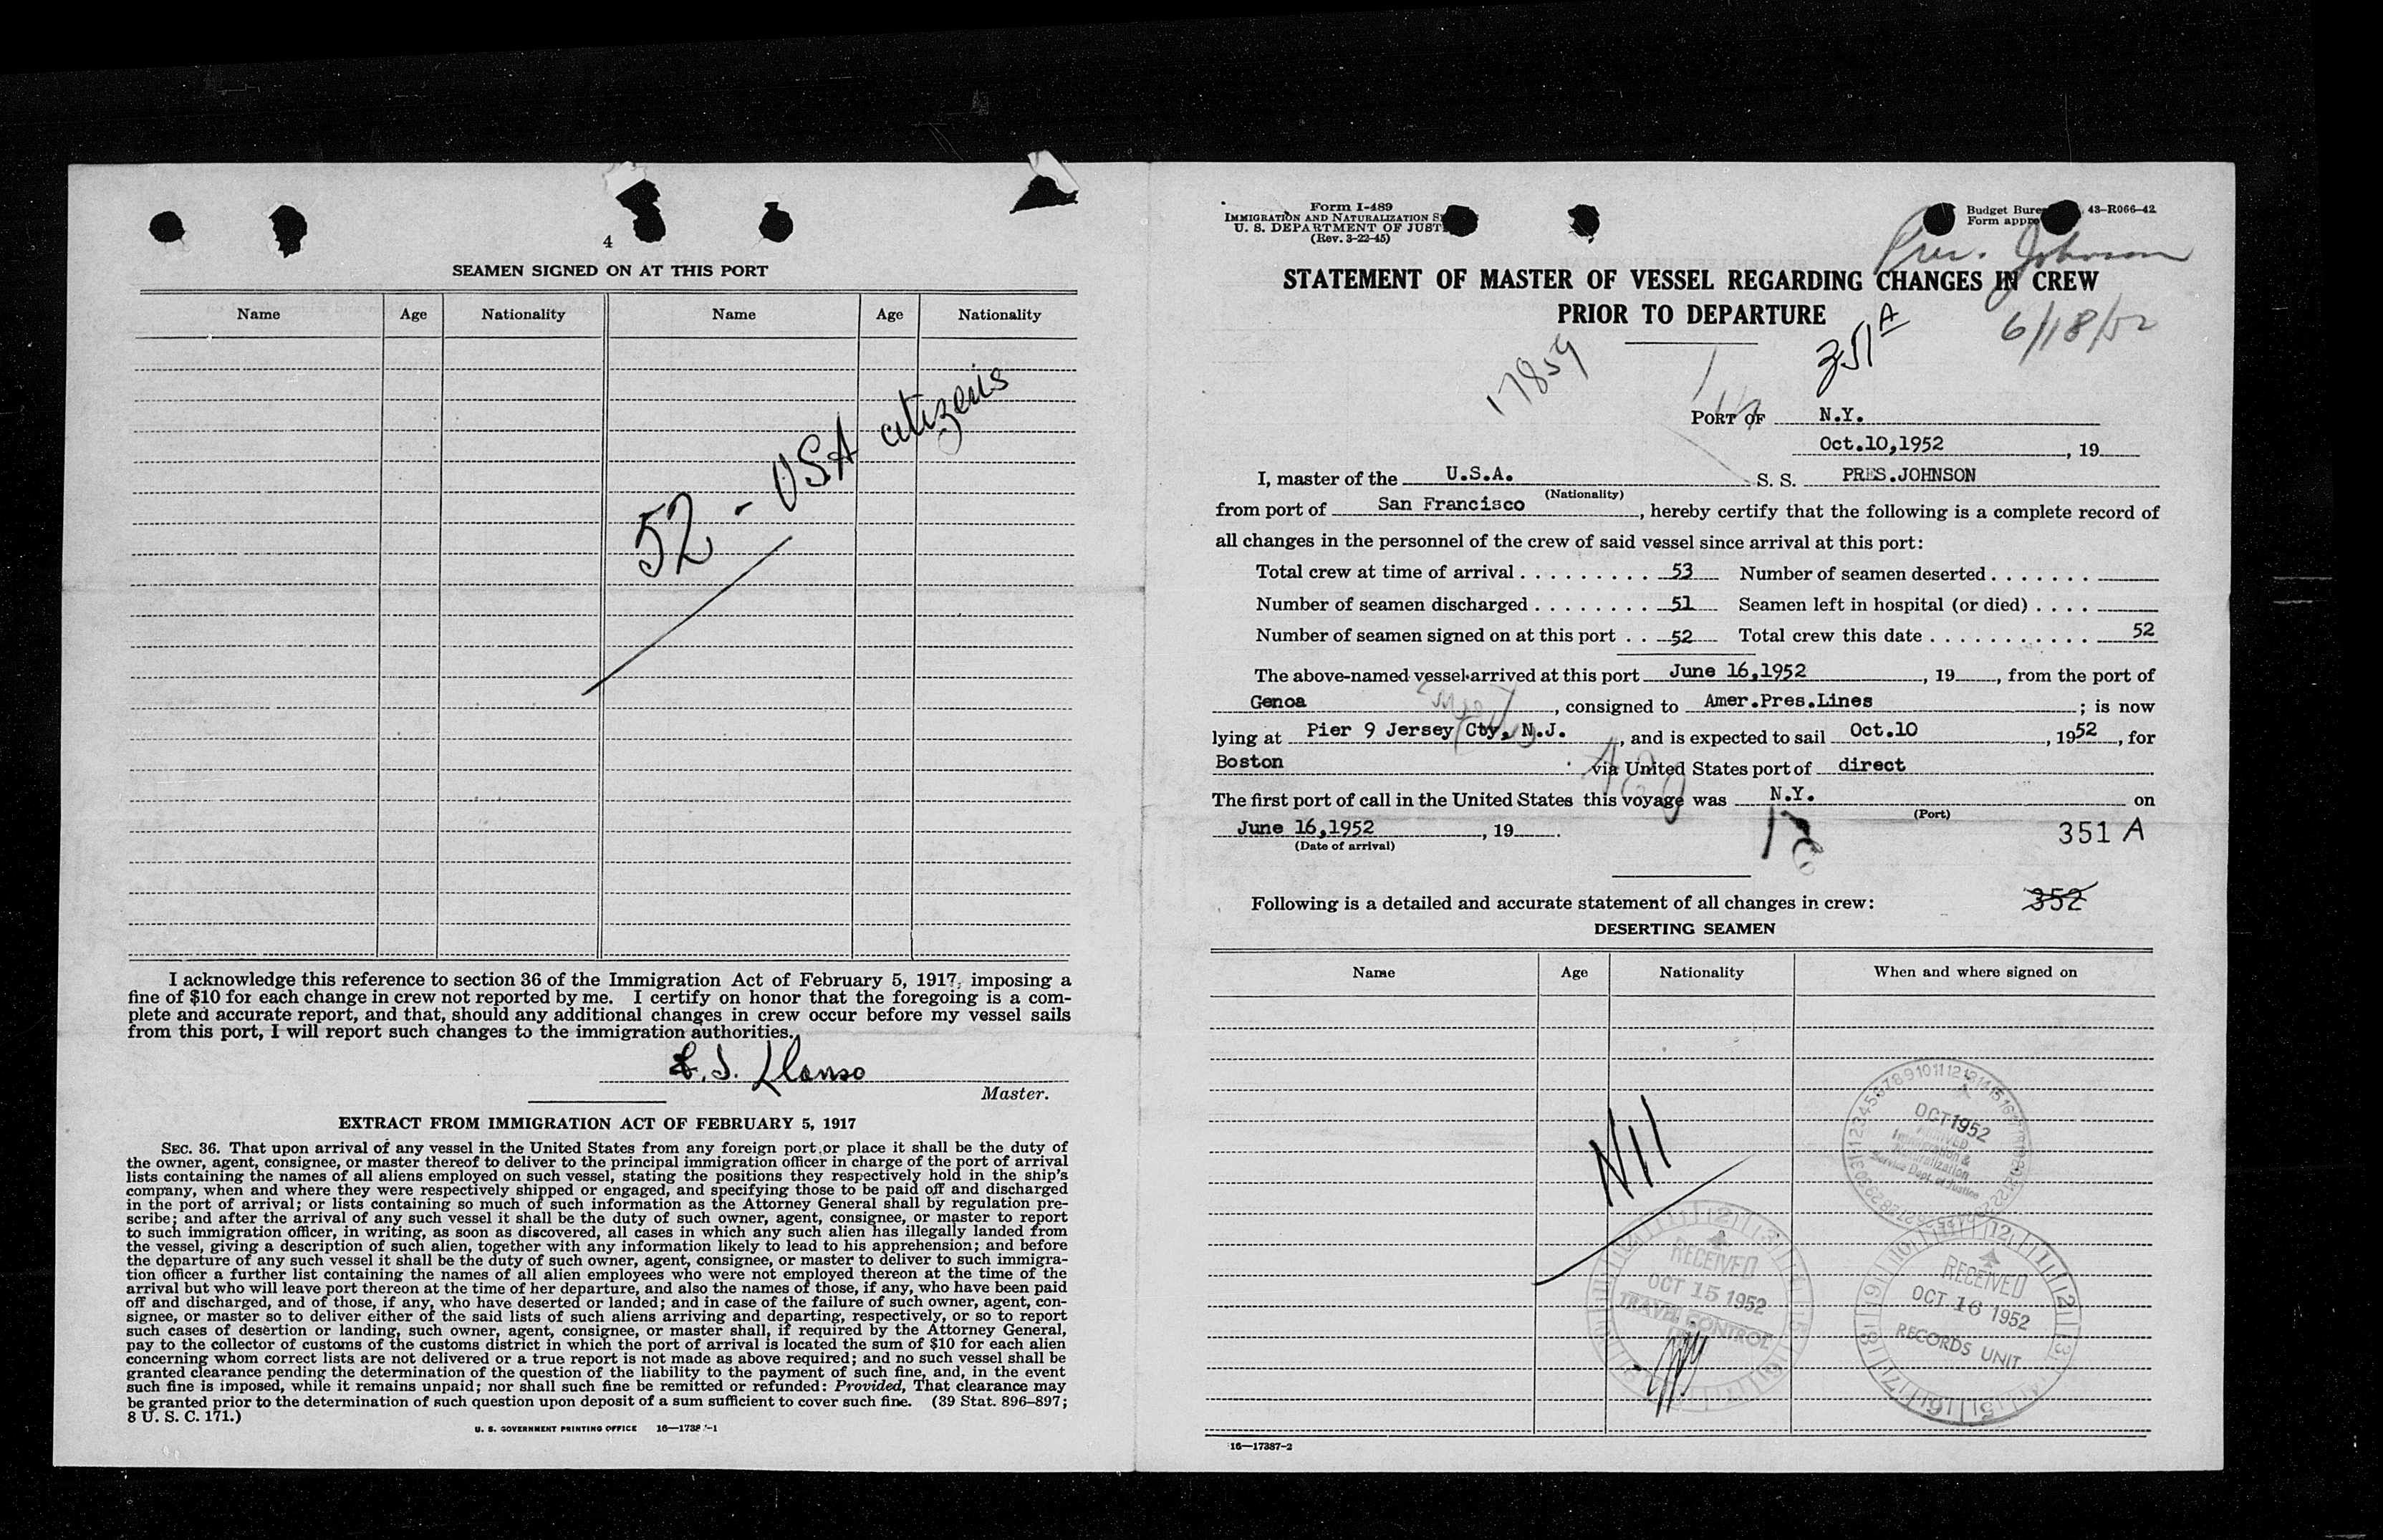 4
SEAMEN SIGNED ON AT THIS PORT
Name Age Nationality Name Age Nationality
52 - USA citizens
I acknowledge this reference to section 36 of the Immigration Act of February 5, 1917, imposing a
fine of $10 for each change in crew not reported by me. I certify on honor that the foregoing is a com-
plete and accurate report, and that, should any additional changes in crew occur before my vessel sails
from this port, I will report such changes to the immigration authorities.
Llanso
Master.
EXTRACT FROM IMMIGRATION ACT OF FEBRUARY 5, 1917
SEC. 36. That upon arrival of any vessel in the United States from any foreign port or place it shall be the duty of
the owner, agent, consignee, or master thereof to deliver to the principal immigration officer in charge of the port of arrival
lists containing the names of all aliens employed on such vessel, stating the positions they respectively hold in the ship's
company, when and where they were respectively shipped or engaged, and specifying those to be paid off and discharged
in the port of arrival; or lists containing so much of such information as the Attorney General shall by regulation pre-
scribe; and after the arrival of any such vessel it shall be the duty of such owner, agent, consignee, or master to report
to such immigration officer, in writing, as soon as discovered, all cases in which any such alien has illegally landed from
the vessel, giving a description of such alien, together with any information likely to lead to his apprehension; and before
the departure of any such vessel it shall be the duty of such owner, agent, consignee, or master to deliver to such immigra-
tion officer a further list containing the names of all alien employees who were not employed thereon at the time of the
arrival but who will leave port thereon at the time of her departure, and also the names of those, if any, who have been paid
off and discharged, and of those, if any, who have deserted or landed; and in case of the failure of such owner, agent, con-
signee, or master so to deliver either of the said lists of such aliens arriving and departing, respectively, or so to report
such cases of desertion or landing, such owner, agent, consignee, or master shall, if required by the Attorney General,
pay to the collector of customs of the customs district in which the port of arrival is located the sum of $10 for each alien
concerning whom correct lists are not delivered or a true report is not made as above required; and no such vessel shall be
granted clearance pending the determination of the question of the liability to the payment of such fine, and, in the event
such fine is imposed, while it remains unpaid; nor shall such fine be remitted or refunded: Provided, That clearance may
be granted prior to the determination of such question upon deposit of a sum sufficient to cover such fine. (39 Stat. 896–897;
8 U. S. C. 171.)
U. S. GOVERNMENT PRINTING OFFICE
Form I-489
IMMIGRATION AND NATURALIZATION
U. S. DEPARTMENT OF
(Rev. 3-22-45)
Budget 43–R066–42
Form
Pres. Johnson
6/18/52
STATEMENT OF MASTER OF VESSEL REGARDING CHANGES IN CREW
PRIOR TO DEPARTURE
17859
351 A
PORT OF N.Y.
Oct.10,1952, 19
I, master of the U.S.A. S. S. PRES.JOHNSON
(Nationality)
from port of San Francisco, hereby certify that the following is a complete record of
all changes in the personnel of the crew of said vessel since arrival at this port:
Total crew at time of arrival . . . . . . . . . 53 Number of seamen deserted . . . . . . .
Number of seamen discharged . . . . . . . . 51 Seamen left in hospital (or died) . . . .
Number of seamen signed on at this port . . 52 Total crew this date . . . . . . . . . . . . 52
The above-named vessel arrived at this port June 16,1952, 19, from the port of
Genoa, consigned to Amer.Pres.Lines; is now
lying at Pier 9 Jersey Cty, N.J., and is expected to sail Oct.10, 1952, for
Boston via United States port of direct
The first port of call in the United States this voyage was N.Y. on
(Port)
June 16,1952, 19.
(Date of arrival)
351 A
Following is a detailed and accurate statement of all changes in crew:
352
DESERTING SEAMEN
Name Age Nationality When and where signed on
Nil
OCT 1952
Immigration &
Naturalization
Service Dept. of Justice
RECEIVED
OCT 15 1952
TRAVEL CONTROL
RECEIVED
OCT 16 1952
RECORDS UNIT
16—17387-2